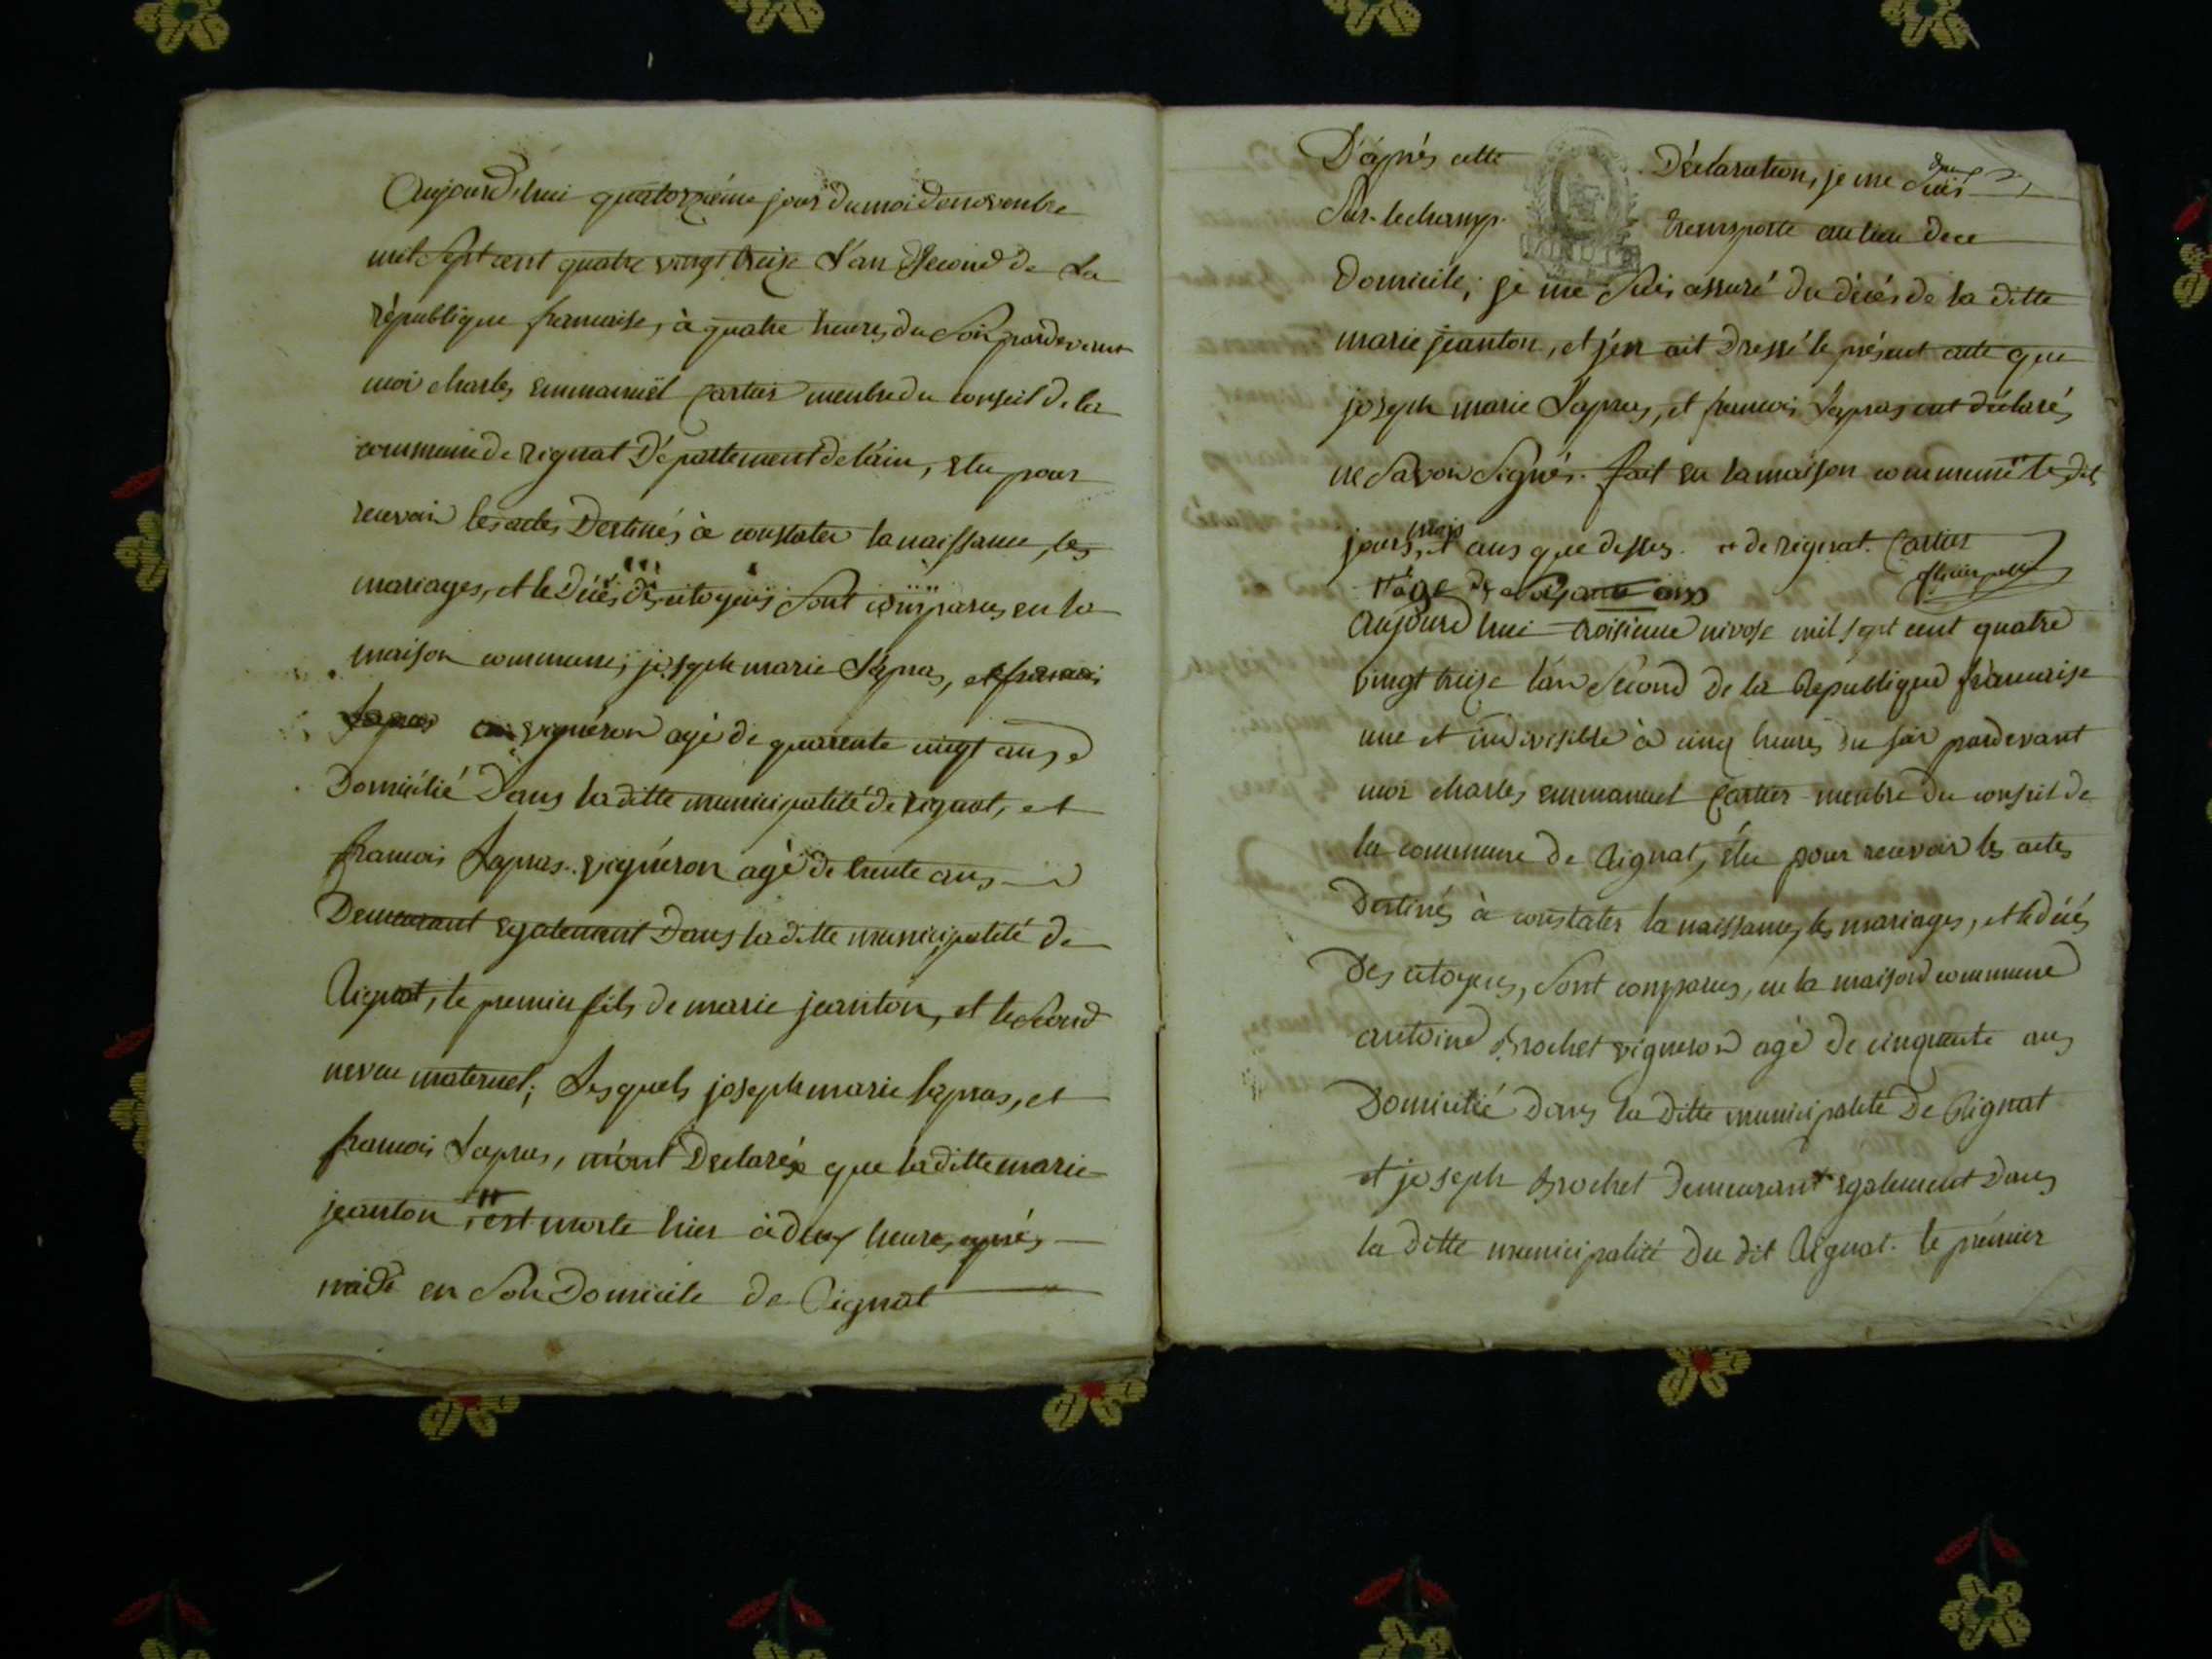 Aujourd'hui quatorzième jour du moi de novembre
mil sept cent quatre vingt treize l'an second de la
république francaise, à quatre heures du soir pardevant
moi charles emmanuël Cartier membre du conseil de la
commune de rignat Département de lain, elu pour
recevoir les actes Destinés à constater la naissance, les
mariages, et le décés des citoyens sont comparus en la
maison commune, joseph marie Lapras, et francois
Lapras vignéron agé de quarente cinq ans
Domicilié Dans la ditte municipalité de rignat, et
francois Lapras vignéron agé de trente ans
Demeurant egalement Dans la ditte municipalité de
Rignat, le premier fils de marie jeanton, et le second
neveu maternel; Lesquels joseph marie lapras, et
francois Lapras, m'ont Declarés que la ditte marie
jeanton, est morte hier à deux heures, aprés
midi en son Domicile de Rignat
D'aprés cette Déclaration, je me suis
sur-le champ transporte au lieu de ce
Domicile; je me suis assuré du décés de la ditte
marie jeanton, et j'en ait Dressé le présent acte que
joseph marie Lapras, et francois Lapras ont déclarés
ne savoir signés. fait en la maison commune le dit
jours, mois et ans que dessus. de rignat. Cartier
agé de soixante ans officier public
Aujourd hui troisieme nivose mil sept cent quatre
vingt treize l'an second de la République francaise
une et indivisible à cinq heures du soir pardevant
moi charles emmanuel Cartier membre du conseil de
la commune de Rignat, élu pour recevoir les actes
Destinés à constater la naissance, les mariages, et le décés
Des citoyens, sont comparus, en la maison commune
antoine Brochet vigneron agé de cinquante ans
Domicilié dans la ditte municipalité De Rignat
et joseph Brochet demeurant egalement dans
la ditte municipalité du dit Rignat. le prémier